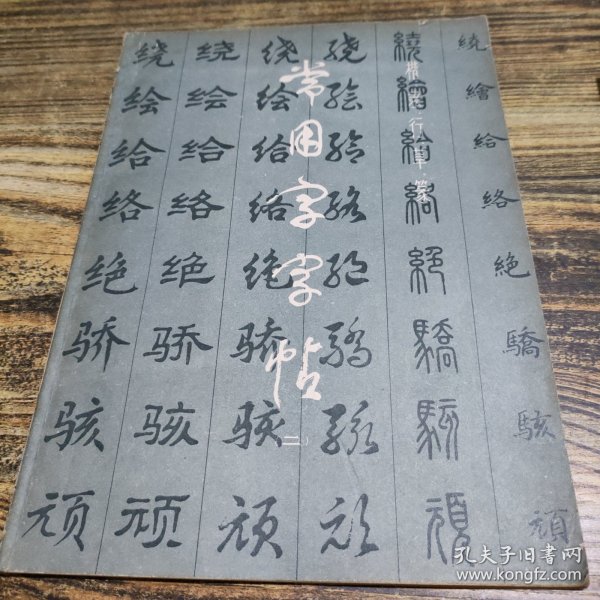 常用字字帖
（二）
楷·隶·行·草·篆
绕 绕 绕 绕 繞 繞
绘 绘 绘 绘 繪 繪
给 给 给 给 給 給
络 络 络 络 絡 絡
绝 绝 绝 绝 絕 絕
骄 骄 骄 驕 驕 驕
骇 骇 骇 骇 駭 駭
顽 顽 顽 顽 頑 頑
孔夫子旧书网
www.kongfz.com